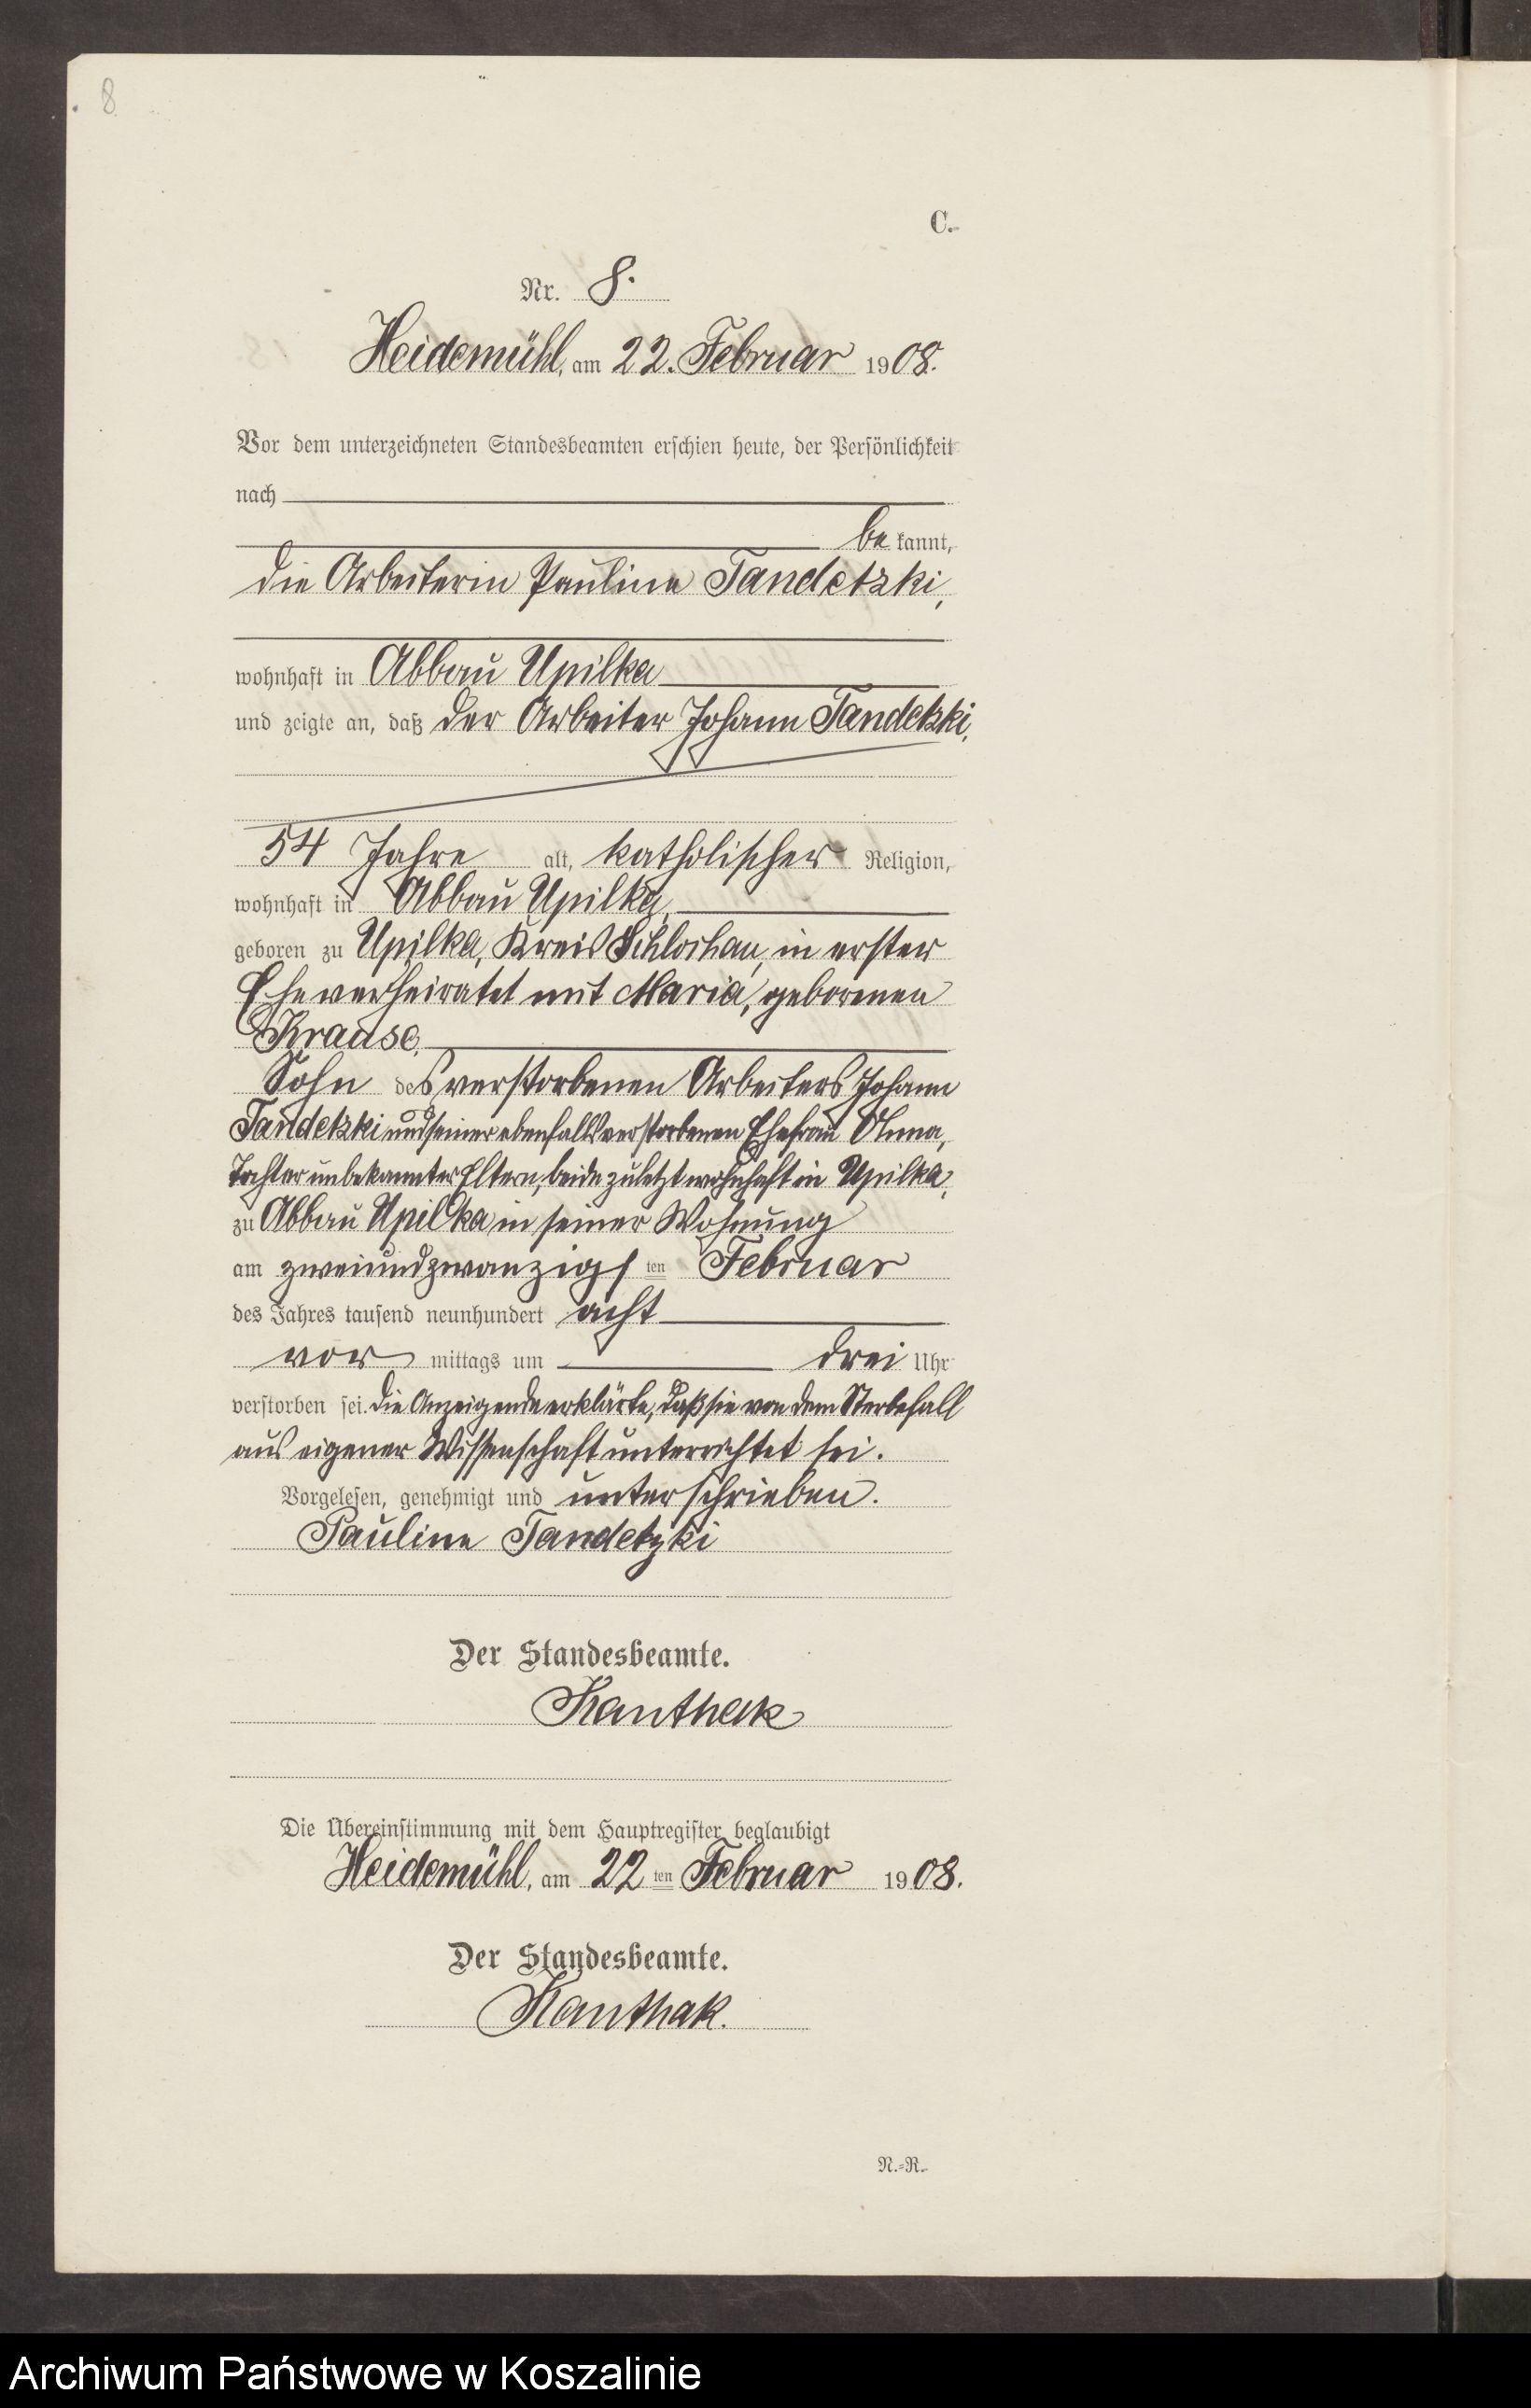 8
C.
Nr. 8.
Heidemühl, am 22. Februar 1908.
Vor dem unterzeichneten Standesbeamten erschien heute, der Persönlichkeit
nach
be kannt,
die Arbeiterin Pauline Tandetzki,
wohnhaft in Abbau Upilka
und zeigte an, daß der Arbeiter Johann Tandetzki,
54 Jahre alt, katholischer Religion,
wohnhaft in Abbau Upilka,
geboren zu Upilka, Kreis Schlochau, in erster
Ehe verheiratet mit Maria, geborenen
Krause,
Sohn des verstorbenen Arbeiters Johann
Tandetzki und seiner ebenfalls verstorbenen Ehefrau Anna,
Tochter unbekannter Eltern, beide zuletzt wohnhaft in Upilka,
zu Abbau Upilka in seiner Wohnung
am zweiundzwanzigsten Februar
des Jahres tausend neunhundert acht
vor mittags um drei Uhr
verstorben sei. Die Anzeigende erklärte, daß sie von dem Sterbefall
aus eigener Wissenschaft unterrichtet sei.
Vorgelesen, genehmigt und unterschrieben.
Pauline Tandetzki
Der Standesbeamte.
Kanthak
Die Übereinstimmung mit dem Hauptregister beglaubigt
Heidemühl, am 22 ten Februar 1908.
Der Standesbeamte.
Kanthak.
N.-R.
Archiwum Państwowe w Koszalinie